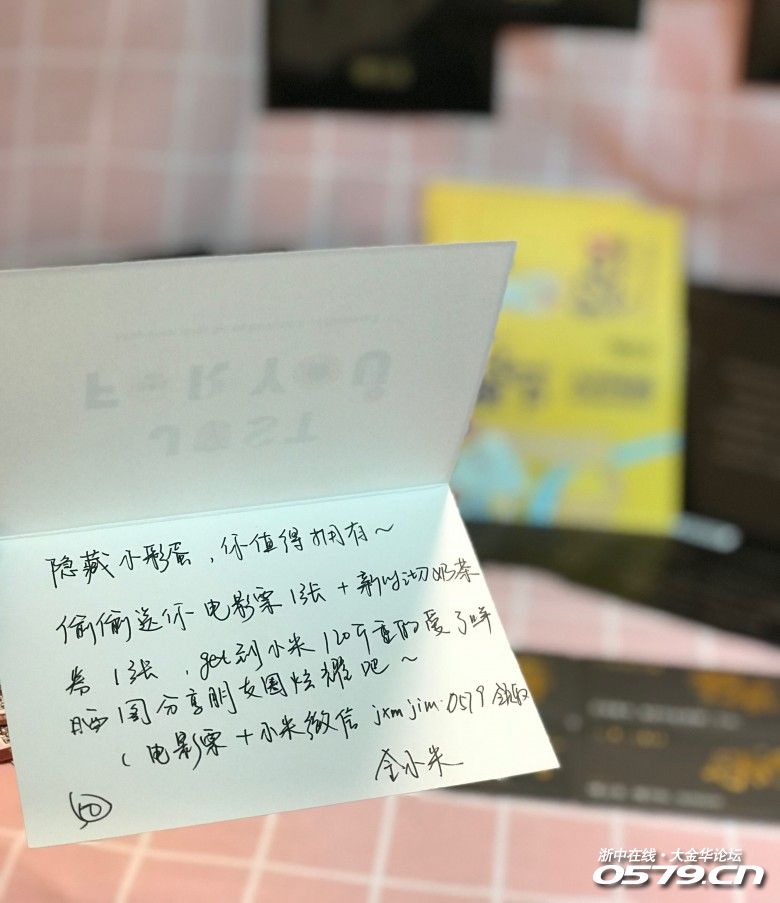 JUST
FOR YOU
隐藏小彩蛋，你值得拥有～
偷偷送你电影票1张+新时沏奶茶
券1张，get到小米120斤重的爱了咩
晒图分享朋友圈炫耀吧～
（电影票+小米微信jxmjim0579领取
金小米
50
浙中在线·大金华论坛
0579.cn